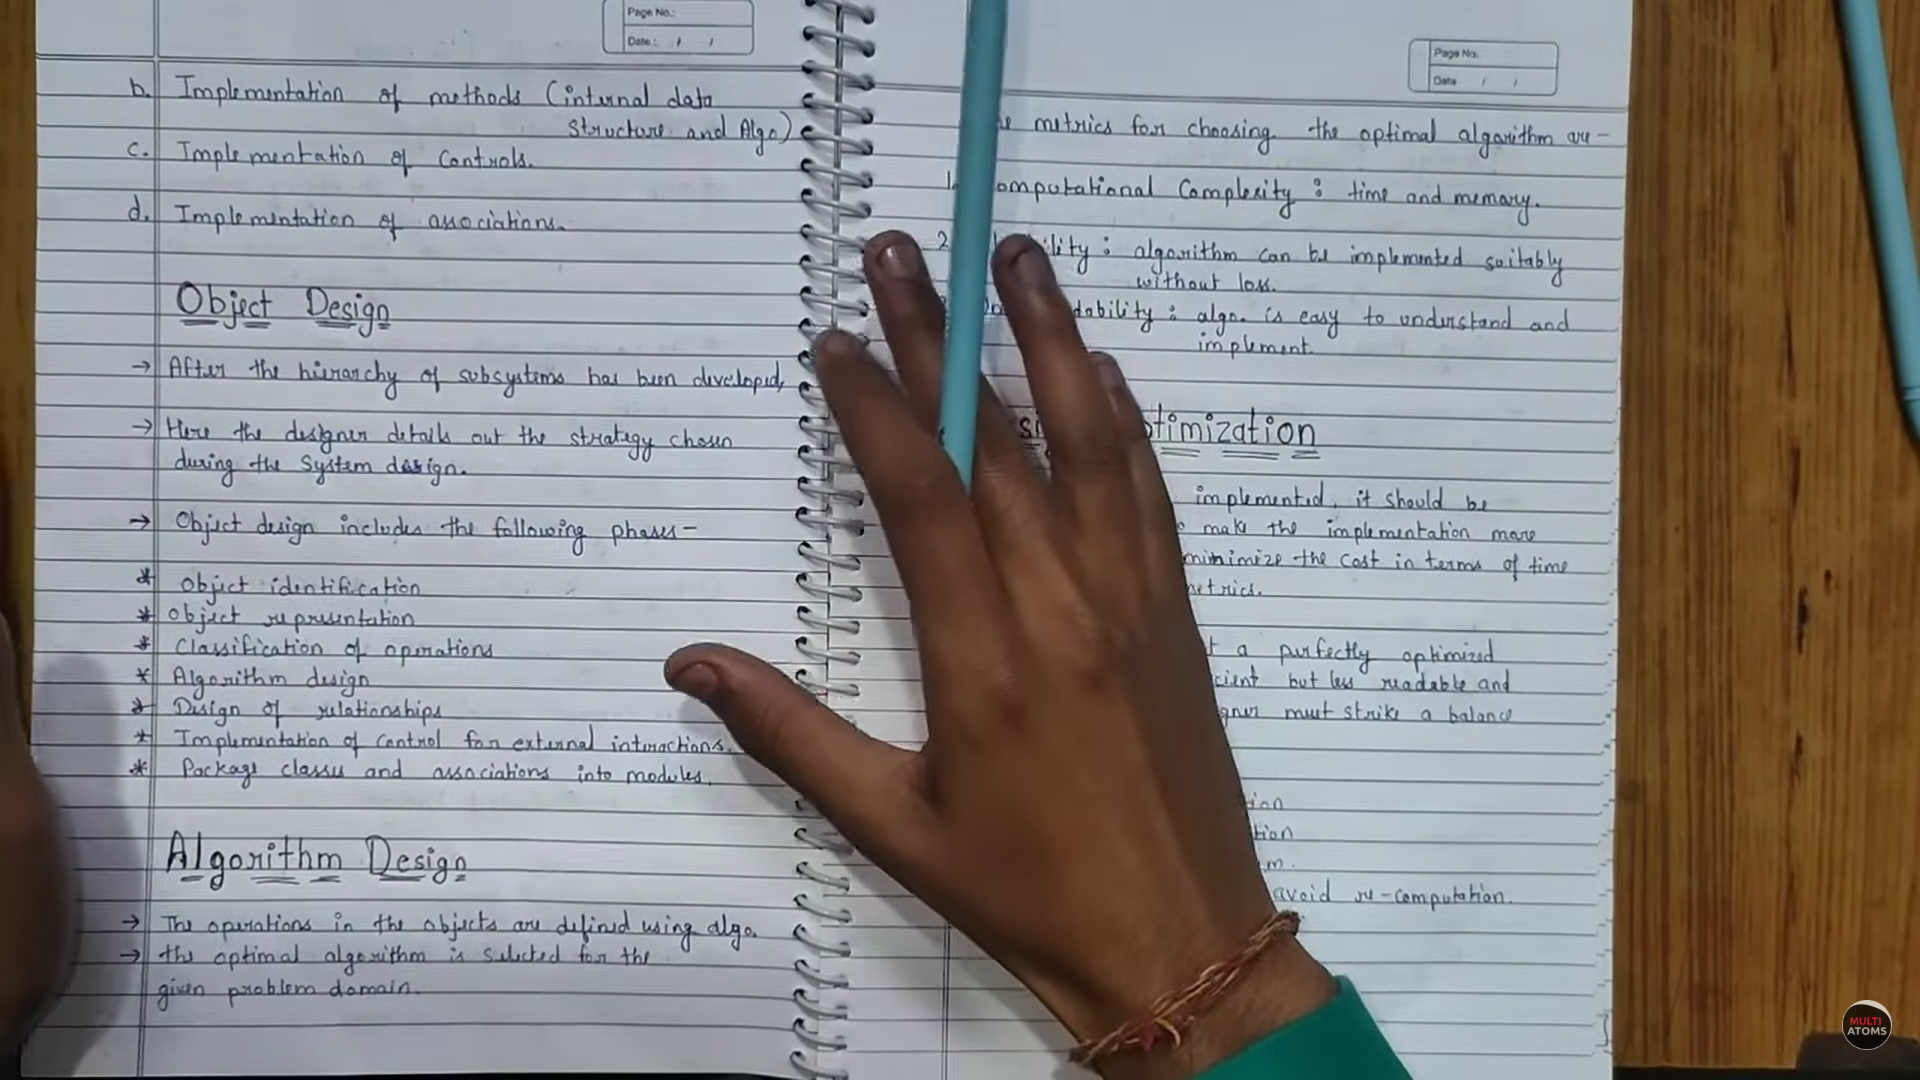 Page No.:
Date: / /
b. Implementation of methods (internal data
structure and Algo)
c. Implementation of Controls.
d. Implementation of associations.
Object Design
→ After the hierarchy of subsystems has been developed,
→ Here the designer details out the strategy chosen
during the System design.
→ Object design includes the following phases-
* Object identification
* Object representation
* Classification of operations
* Algorithm design
* Design of relationships
* Implementation of control for external interactions.
* Package classes and associations into modules.
Algorithm Design
→ The operations in the objects are defined using algo.
→ the optimal algorithm is selected for the
given problem domain.
Page No.
Date / /
metrics for choosing the optimal algorithm are-
1. omputational Complexity : time and memory.
2 ility : algorithm can be implemented suitably
without loss.
dability : algo. is easy to understand and
implement.
si timization
implemented, it should be
make the implementation more
minimize the cost in terms of time
etrics.
t a perfectly optimized
cient but less readable and
gner must strike a balance
ion
tion
m.
avoid re-computation.
MULTI
ATOMS